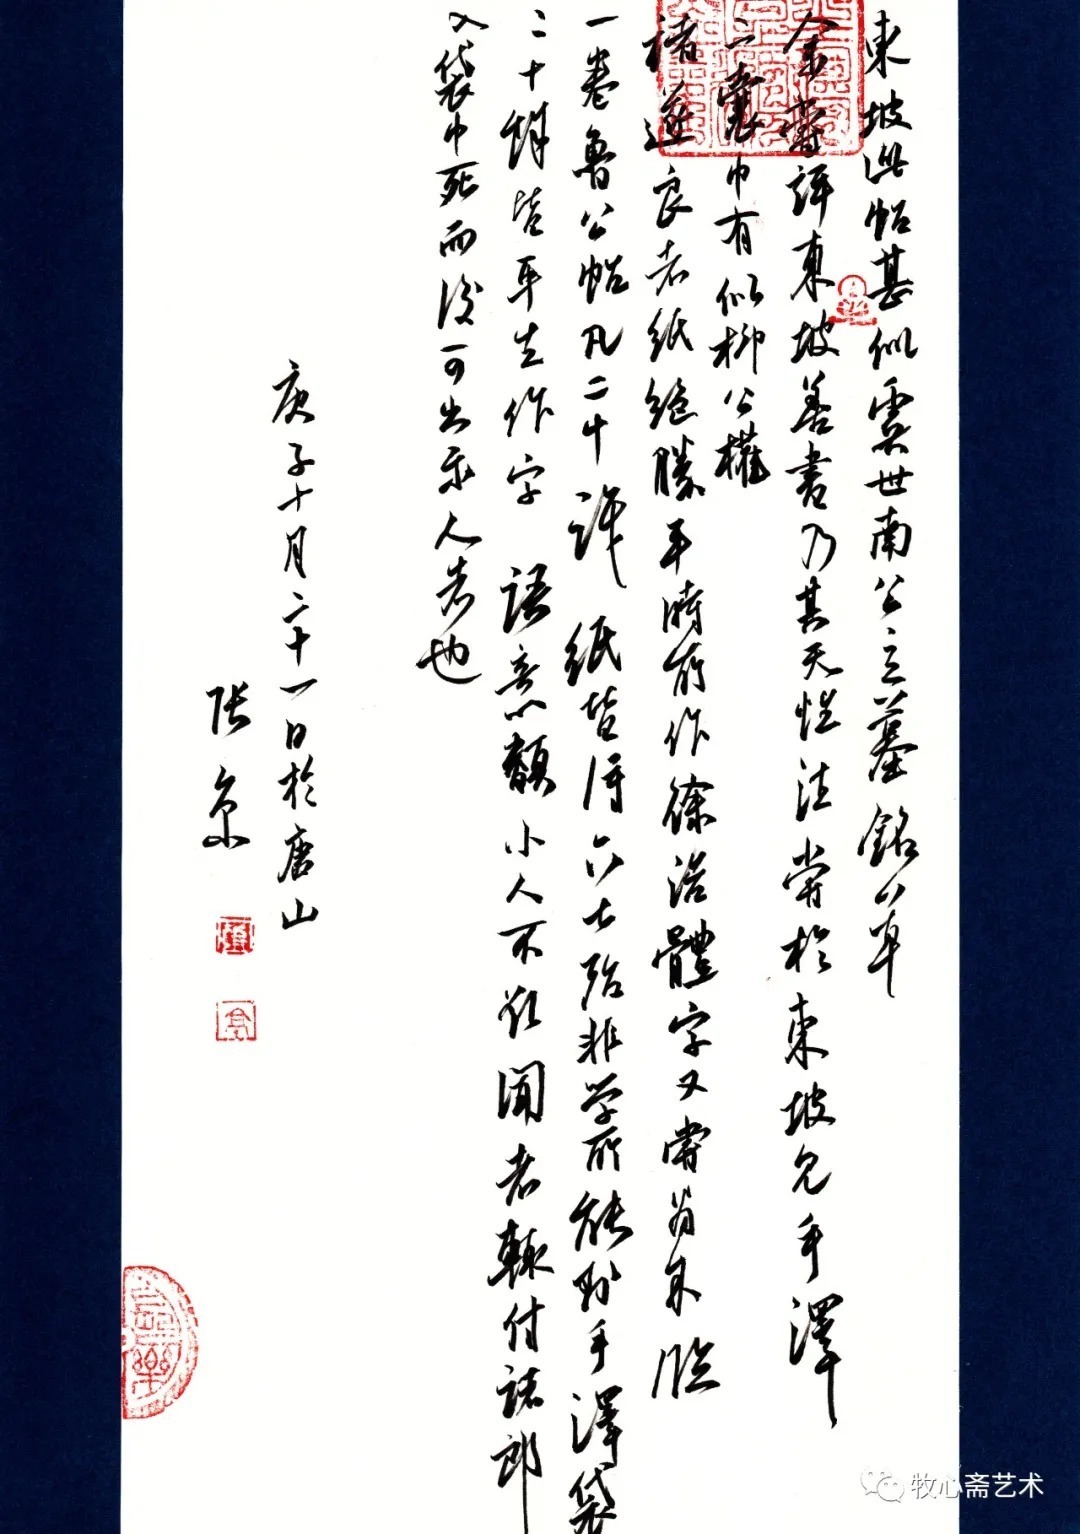 東坡此帖甚似虞世南公主墓銘草
余嘗評東坡善書乃其天性往嘗於東坡見手澤
二囊中有似柳公權
褚遂良者紙絕勝平時所作徐浩體字又嘗為未臨
一卷魯公帖凡二十許紙皆得六七殆非學所能到手澤袋
二十餘皆平生作字語意類小人不欲聞者輒付諸郎
入袋中死而後可出示人者也
庚子十月二十一日於唐山
张
牧心斋艺术